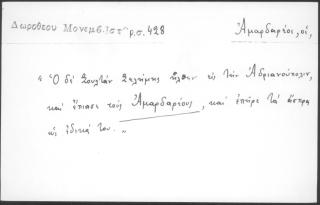 Δωροθέου Μονεμβ. Ἱστ. ρ.σ. 428
Ἀμαρδαρέοι, οἱ,
"Ὁ δὲ Σουλτὰν Σελήμης ἦλθεν εἰς τὴν Ἀδριανούπολιν,
καὶ ἔπιασε τοὺς Ἀμαρδαρέους, καὶ ἐπῆρε τὰ ἄσπρα
ὡς ἐδικά του."